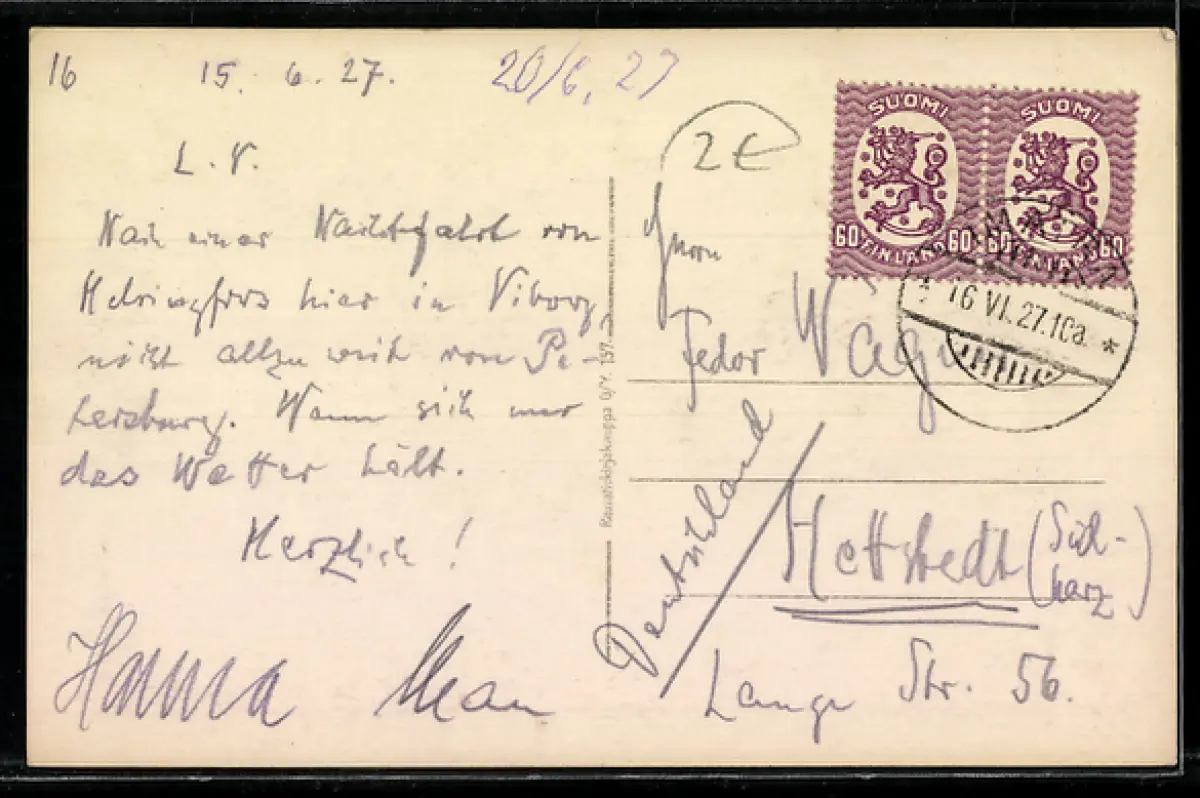 16 15. 6. 27. 20/6. 27
2 €
L. V.
Nach einer Nachtfahrt von
Helsingfors hier in Viborg
nicht allzu weit von Pe-
tersburg. Wenn sich nur
das Wetter hält.
Herzlich!
Hanna
SUOMI SUOMI
60 FINLAND 60 60 FINLAND 60
16 VI. 27. 10a. *
Herrn
Fedor Wagn
Deutschland
Hettstedt (Süd-
harz)
Lange Str. 56.
O/Y. 157.